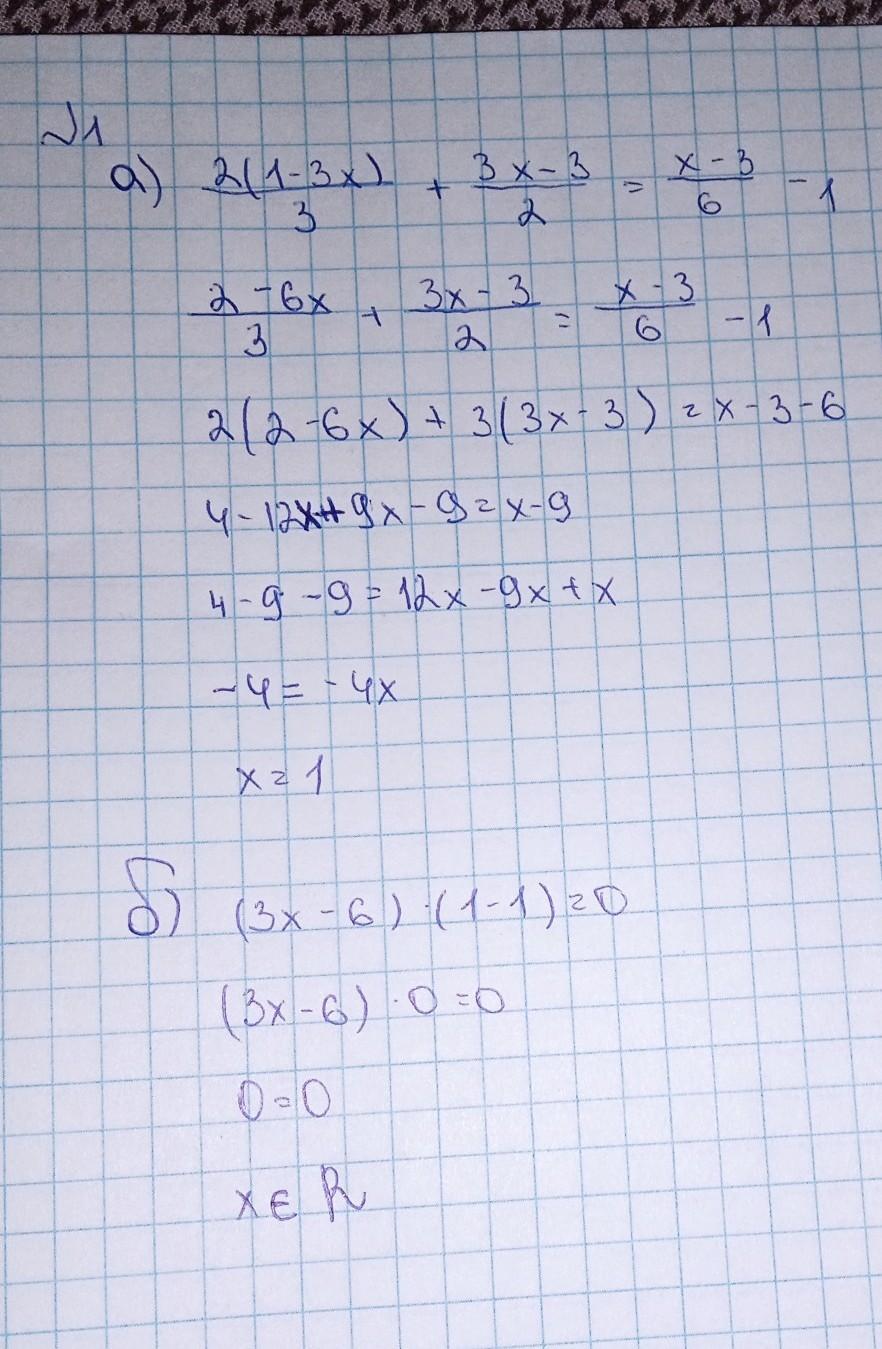 №1
а) 2(1-3x)/3 + 3x-3/2 = x-3/6 - 1
2-6x/3 + 3x-3/2 = x-3/6 - 1
2(2-6x) + 3(3x-3) = x-3-6
4-12x+9x-9=x-9
4-9-9=12x-9x+x
-4=-4x
x=1
б) (3x-6)·(1-1)=0
(3x-6)·0=0
0=0
x∈R